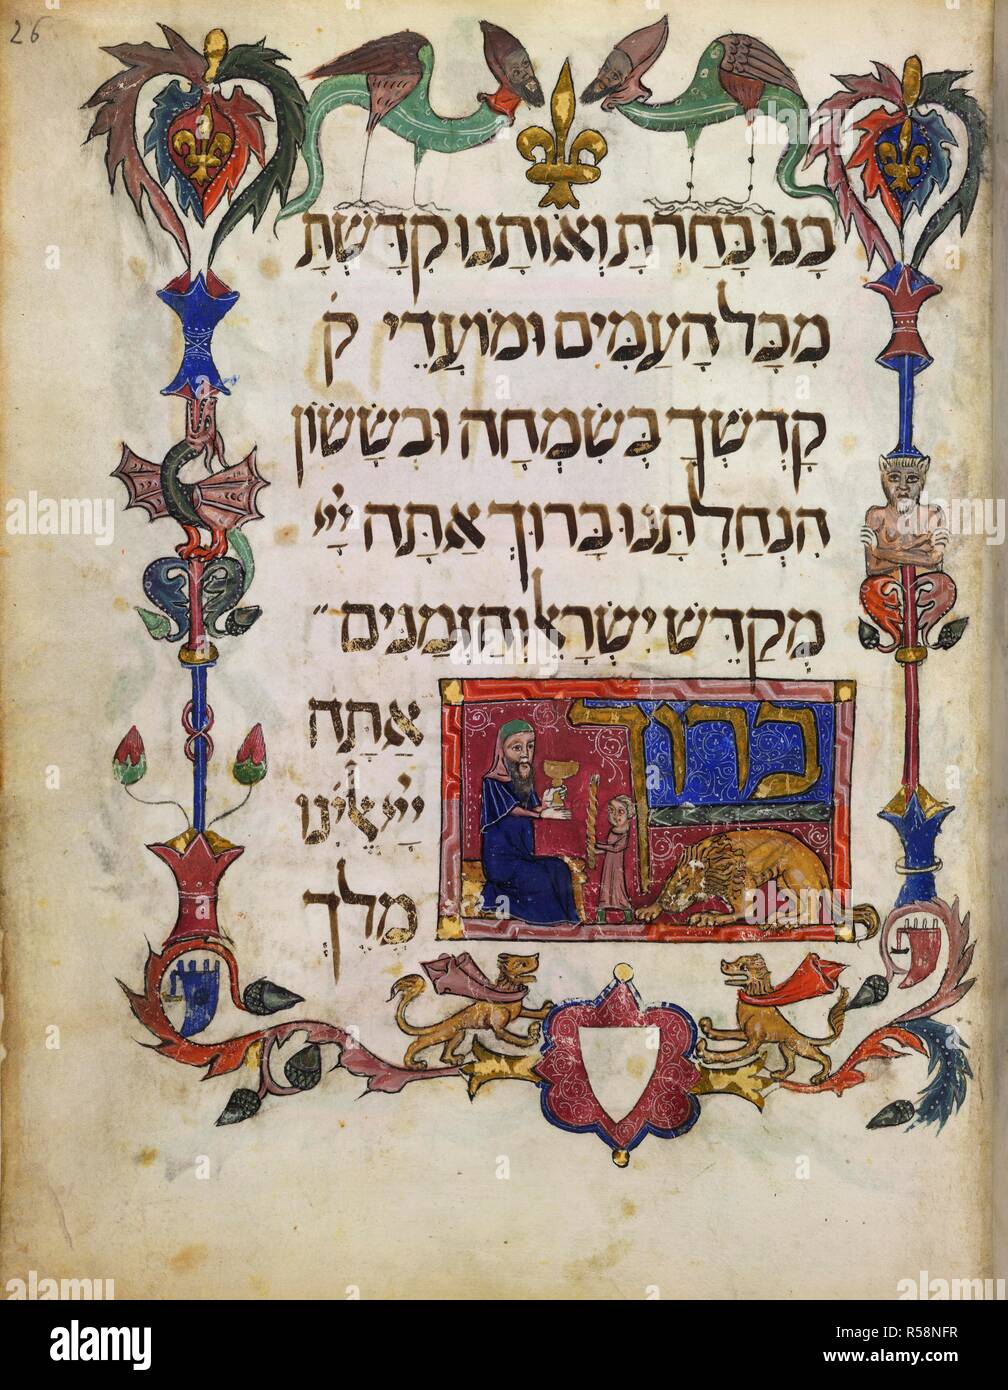 26
בָנוּ בָּחַרְתָּ וְאוֹתָנוּ קִדַּשְׁתָּ
מִכָּל הָעַמִּים וּמוֹעֲדֵי ק
קָדְשְׁךָ בְּשִׂמְחָה וּבְשָׂשׂוֹן
הִנְחַלְתָּנוּ בָּרוּךְ אַתָּה יְיָ
מְקַדֵּשׁ יִשְׂרָאֵל וְהַזְּמַנִּים
בָּרוּךְ
אַתָּה
יְיָ אֱלֹהֵינוּ
מֶלֶךְ
a alamy stock photo
alamy
Image ID: R58NFR
www.alamy.com